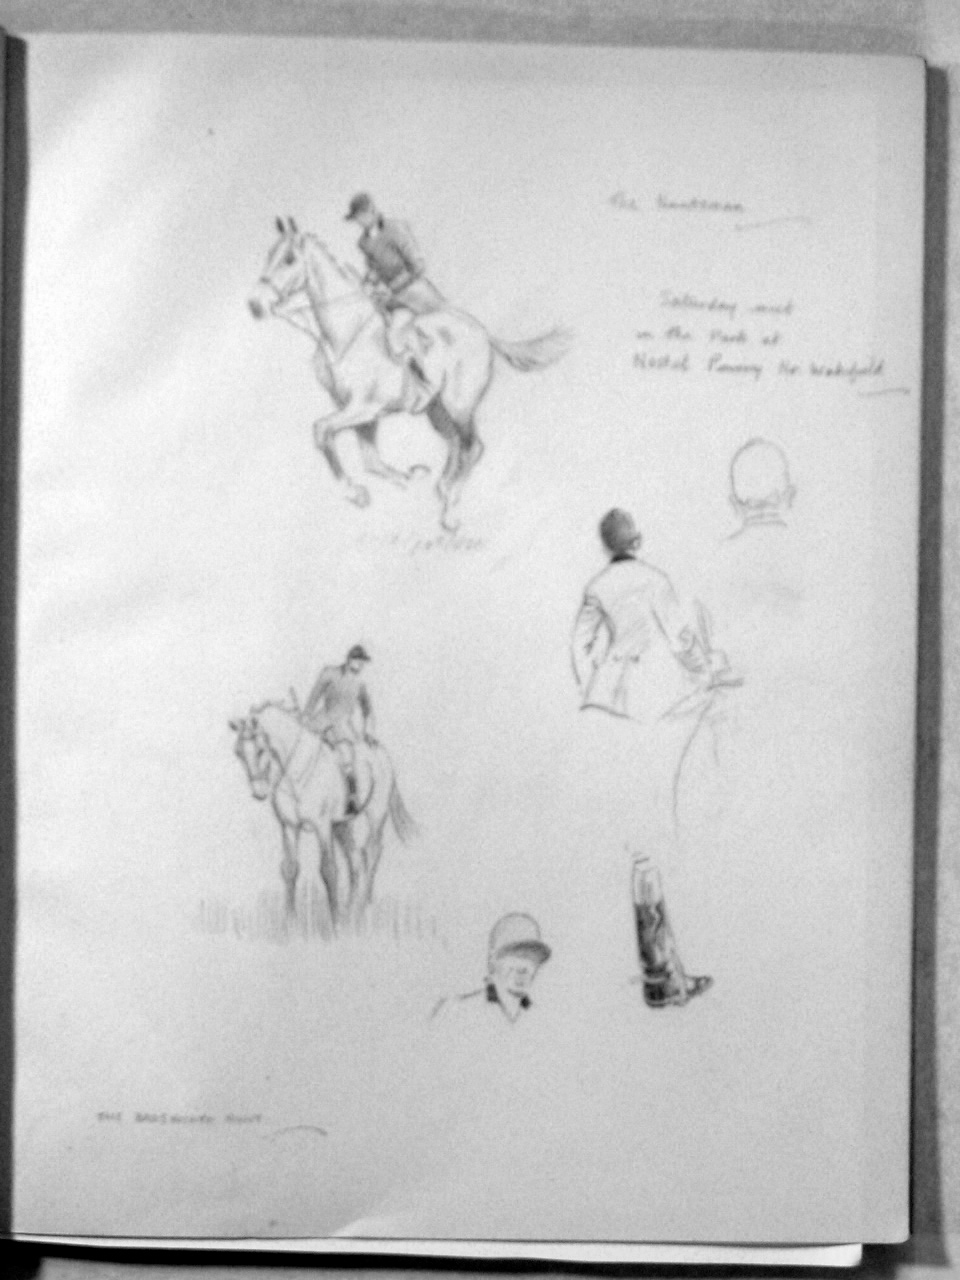 The Huntsman
Saturday meet
in the Park at
Nostel Priory Nr. Wakefield
THE BADSWORTH HUNT